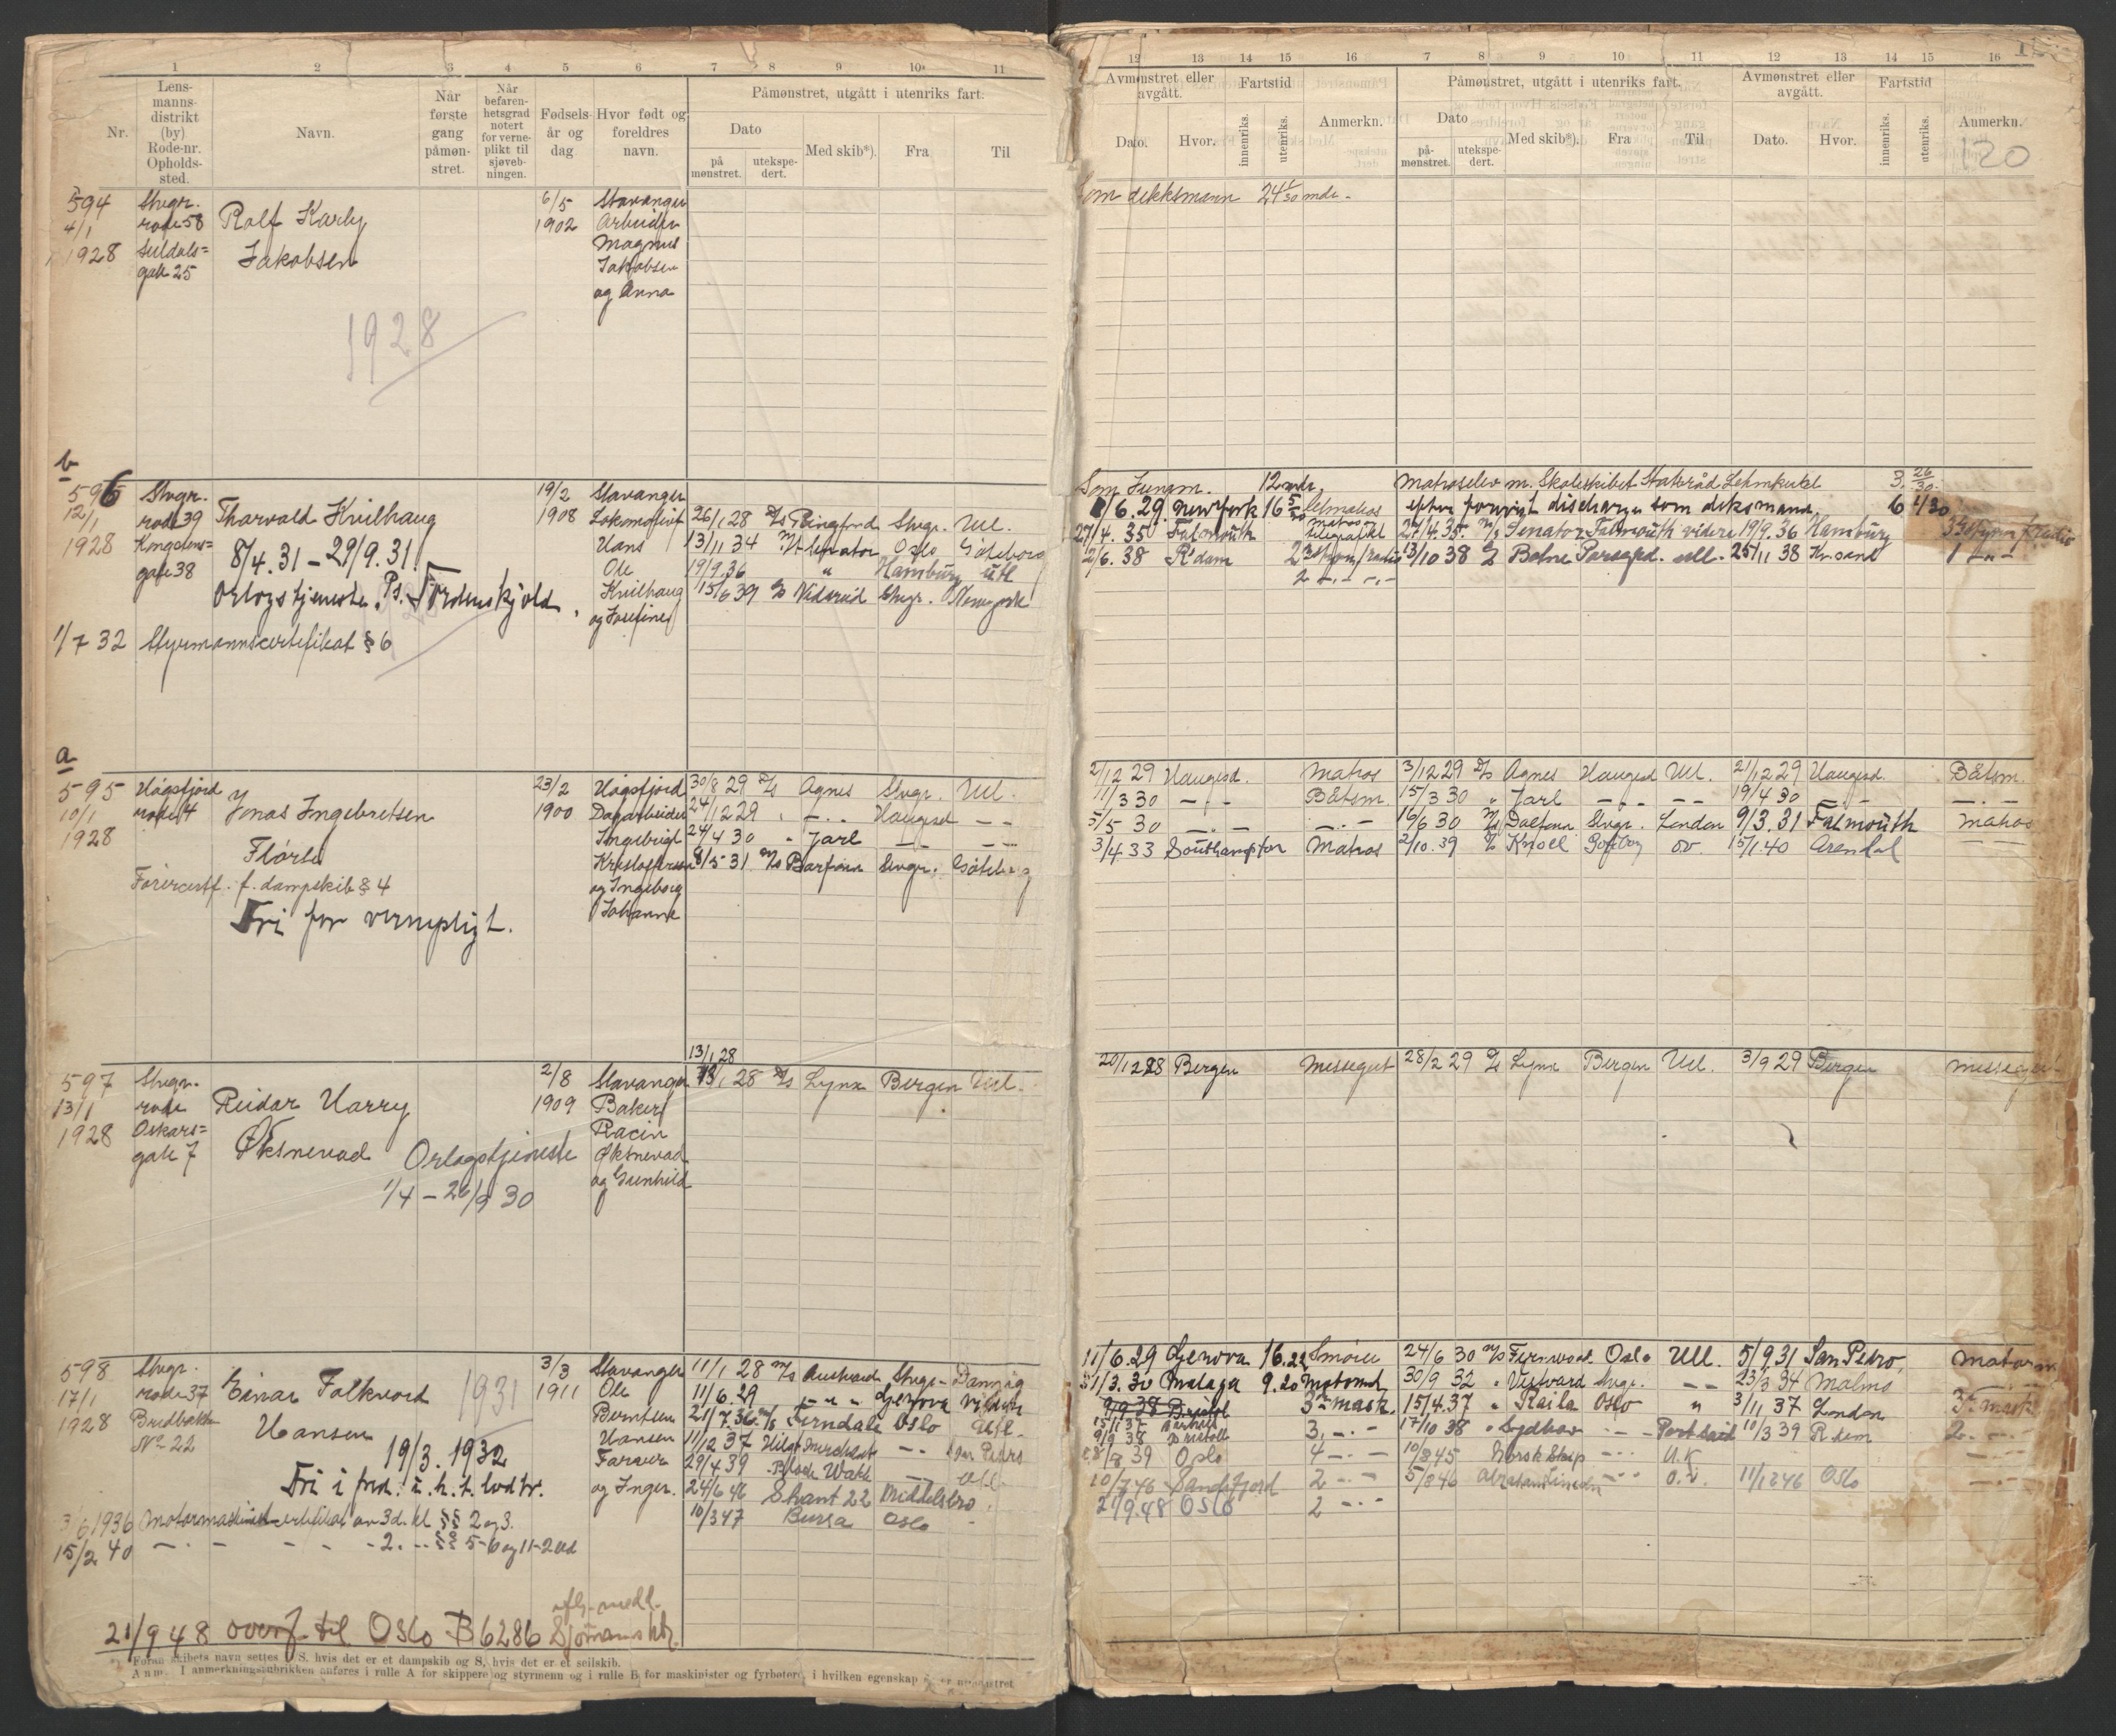 1 2 3 4 5 6 7 8 9 10 11
Nr.
Lens-
manns-
distrikt
(by)
Rode-nr.
Opholds-
sted.
Navn.
Når
første
gang
påmøn-
stret.
Når
befaren-
hetsgrad
notert
for verne-
plikt til
sjøveb-
ningen.
Fødsels-
år og
dag
Hvor født og
foreldres
navn.
Påmønstret, utgått i utenriks fart.
Dato
på
mønstret.
utekspe-
dert.
Med skib*).
Fra
Til
594
4/1
1928
Stvgr.
rode 58
Suldals=
gate 25
Rolf Karby
Jakobsen
1928
6/5
1902
Stavanger
Arbeider
Magnus
Jakobsen
og Anna
b
596
12/1
1928
Stvgr.
rode 39
Kongstens=
gate 38
Tharvald Kvilhaug
8/4.31 – 29/9.31
Orlogstjeneste. Ps. Tordenskjold.
1/7 32 Styrmannscertifikat § 6
19/2
1908
Stavanger
Lokomotivf
Hans
Ole
Kvilhaug
og Josefine
26/1 28 D/s Ringfond Stvgr. Utl.
13/11 34 M/t Senator Oslo Göteborg
19/9.36 " Hamburg utl
15/6 39 D/s Vidareid Stvgr. Newyork
a
595
10/1
1928
Høgsfjord
rode 4
Jonas Ingebretsen
Flørli
Førercertf. f. dampskib § 4
Fri for vernepligt.
23/2
1900
Høgsfjord
Dagarbeider
Ingebrigt
Kristoffersen
og Ingeborg
Johanne
30/8 29 D/s Agnes Stvgr. Utl.
24/12 29 " – . – Haugesd – –
24/4 30 " Jarl – – – –
8/5 31 M/s Barfonn Stvgr. Göteborg
597
13/1
1928
Stvgr.
rode
Oskars=
gate 7
Reidar Harry
Øksnevad
Orlogstjeneste
1/4 – 26/9 30
2/8
1909
Stavanger
Baker
Racin
Øksnevad
og Gunhild
13/1 28
13/1 28 D/s Lynx Bergen Utl.
598
17/1
1928
Stvgr.
rode 37
Bredbakken
No 22
Einar Falkvord
Hansen
1931
19/3. 1932
Fri i fred. i. h. t. lodtr.
3/6 1936 Motormaskinistcertifikat av 3d. kl §§ 2 og 3.
15/2 40 – . – – – - 2. - - §§ 5-6 og 11-2 led
3/3
1911
Stavanger
Ole
Berntsen
Hansen
Farver
og Inger.
11/1 28 M/s Austvard Stvgr. Danzig
11/6.29 – " – " Genova videre
21/7.36 M/s Ferndale Oslo Utl.
11/12 37 Høegh Merchant – - San Pedro
29/4 39 Black Watch – Utl
24/6 46 Skant 22 Middelsbro
10/3 47 Bursa Oslo -
21/9 48 overf. til Oslo B 6286 iflg. medd. Sjömansktr.
*) Foran skibets navn settes D/S, hvis det er et dampskib og S, hvis det er et seilskib.
Anm. I anmerkningsrubrikken anføres i rulle A for skippere og styrmenn og i rulle B for maskinister og fyrbøtere, i hvilken egenskap de er mønstret
12 13 14 15 16 7 8 9 10 11 12 13 14 15 16
Avmønstret eller
avgått.
Fartstid
Dato.
Hvor.
innenriks.
utenriks.
Anmerkn.
Påmønstret, utgått i utenriks fart.
Dato
på-
mønstret.
utekspe-
dert.
Med skib*).
Fra
Til
Avmønstret eller
avgått.
Fartstid
Dato.
Hvor.
innenriks.
utenriks.
Anmerkn.
120
Som dekksmann 24 1/30 mdr.
Som Jungm. 12 mdr. Matroselev m. Skoleskibet Statsråd Lehmkuhl 3. 26/30
8/6.29 Newyork 16 5/30 Letmatros efter forevist discharge som deksmand. 6 4/30
27/4. 35 Falmouth 27/4.35. M/s Senator Falmouth videre 19/9.36 Hamburg
2/6. 38 R'dam 13/10 38 D/s Botne Porsgrd. utl. 25/11 38 Kr.sand 1 – " –
2/12 29 Haugesd. Matros 3/12 29 D/s Agnes Haugesd Utl. 21/12 29 Haugesd. Båtsm.
11/3 30 – . – Båtsm. 15/3 30 " Jarl – . – – – 19/4 30 – . – – . –
5/5 30 – . – – . – 16/6 30 M/s Dalfonn Stvgr. London 9/3.31 Falmouth Matros
3/4 33 Southampton Matros 2/10.39 D/s Knoll Gøtborg ov. 15/1 40 Arendal
20/12 28 Bergen Messegut 28/2 29 D/s Lynx Bergen Utl. 3/9 29 Bergen Messegut
11/6.29 Genova 16.22 Smörer 24/6 30 M/s Fernwood Oslo Utl. 5/9 31 San Pedro Motorm
31/3.30 Malaga 9.20 Motormd 30/9 32 " Vestvard Stvgr. – – 23/3 34 Malmö
9/9 38 Bristol 3m mask. 15/4.37 " Raila Oslo " 3/11 37 London 3m mask
9/9 38 Bristol 3. – . – 17/10 38 " Sydhav – . – Port Said 10/3 39 R dam 2. – . –
/8 39 Oslo 4 – . – 10/8 45 Norsk Skip – . – U.K.
10/7 46 Sandefjord 2 – . – 5/8 46 Abraham Lincoln – . – O.V. 11/12 46 Oslo – . –
21/9.48 Oslo 2 – . –